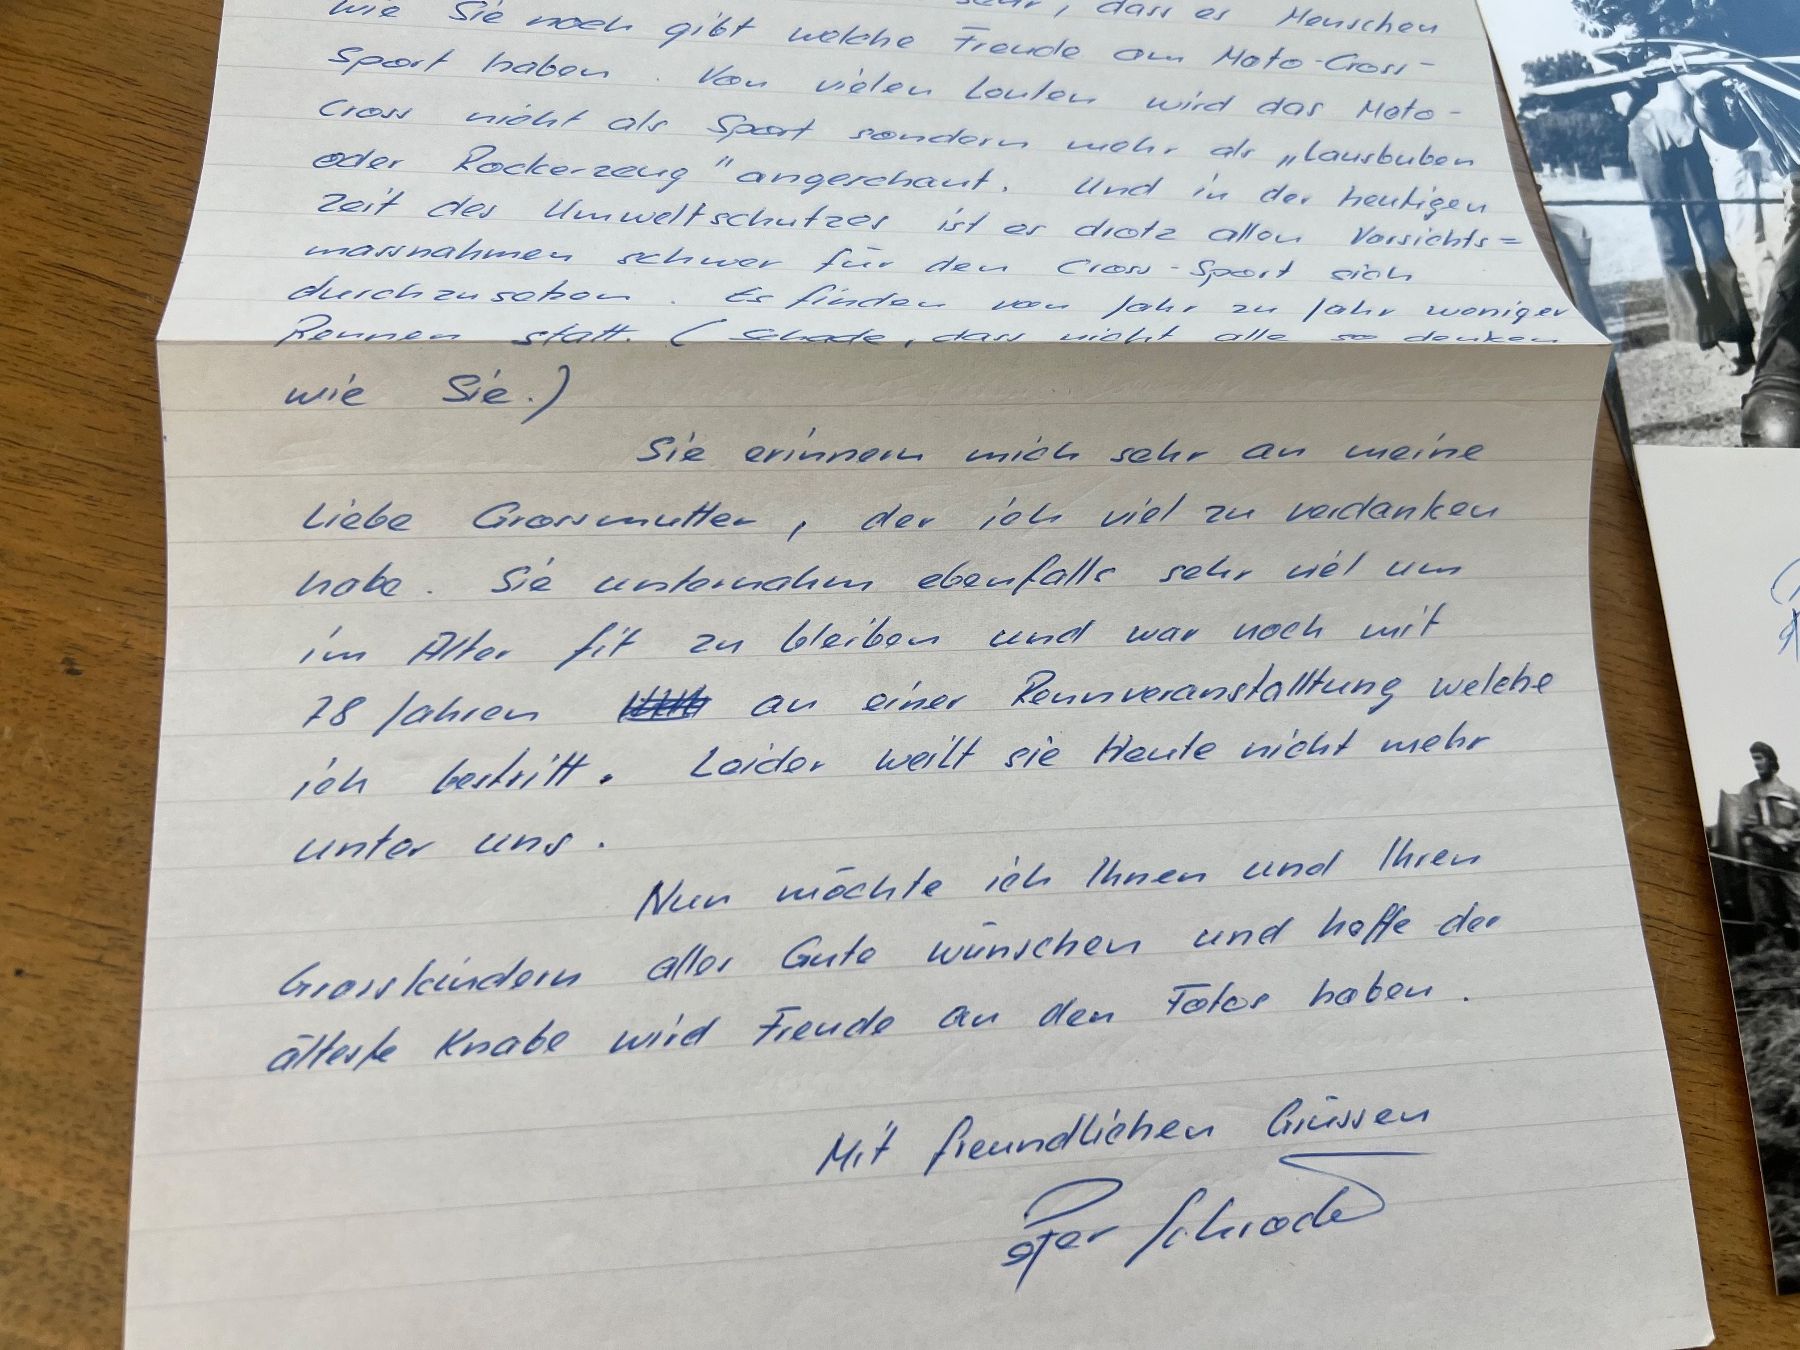 sehr, dass es Menschen
wie Sie noch gibt welche Freude am Moto-Cross-
Sport haben. Von vielen Leuten wird das Moto-
Cross nicht als Sport sondern mehr als „Lausbuben
oder Rockerzeug" angeschaut. Und in der heutigen
Zeit des Umweltschutzes ist es drotz allen Vorsichts=
massnahmen schwer für den Cross-Sport sich
durchzusetzen. Es finden von Jahr zu Jahr weniger
Rennen statt. (Schade, dass nicht alle so denken
wie Sie.)
Sie erinnern mich sehr an meine
liebe Grossmutter, der ich viel zu verdanken
habe. Sie unternahm ebenfalls sehr viel um
im Alter fit zu bleiben und war noch mit
78 Jahren an einer Rennveranstalltung welche
ich bestritt. Leider weilt sie Heute nicht mehr
unter uns.
Nun möchte ich Ihnen und Ihren
Grosskindern alles Gute wünschen und hoffe der
älteste Knabe wird Freude an den Fotos haben.
Mit freundlichen Grüssen
Peter